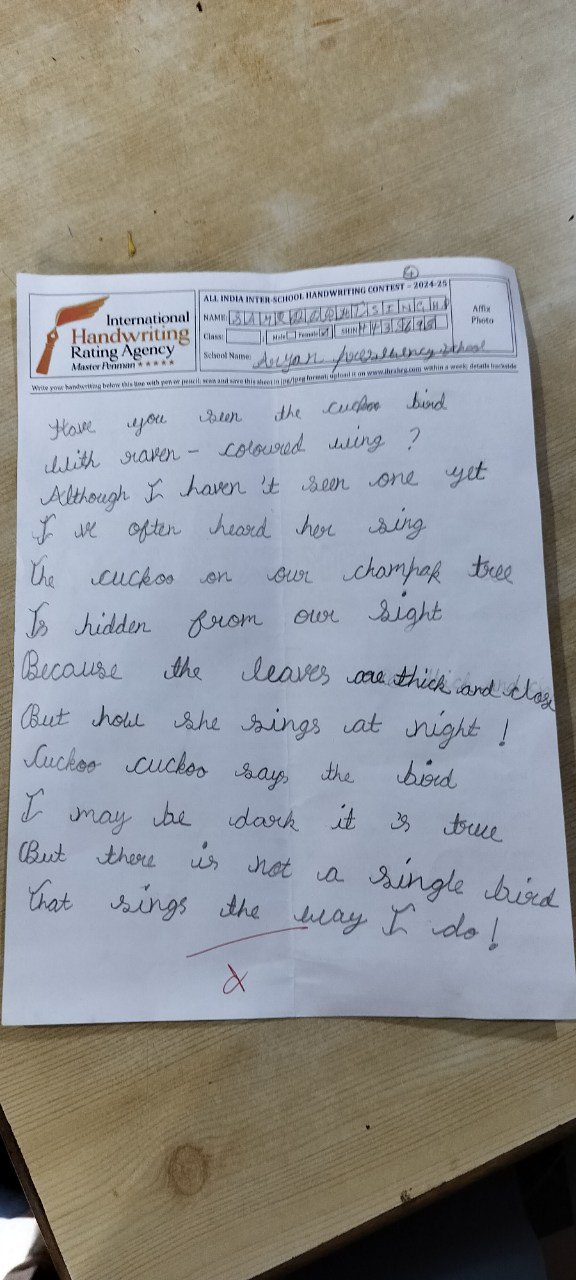 International
Handwriting
Rating Agency
Master Penman ★★★★★
ALL INDIA INTER-SCHOOL HANDWRITING CONTEST - 2024-25
NAME:
Class:
Male
Female
School Name: Aryan presidency school
Affix
Photo
Write your handwriting below this line with pen or pencil; scan and save this sheet in jpg/jpeg format; upload it on www.ihrahrg.com within a week; details backside
Have you seen the cuckoo bird
With raven - coloured wing ?
Although I haven't seen one yet
I ve often heard her sing
The cuckoo on our champak tree
Is hidden from our sight
Because the leaves are thick and close
But how she sings at night !
Cuckoo cuckoo says the bird
I may be dark it is true
But there is not a single bird
That sings the way I do !